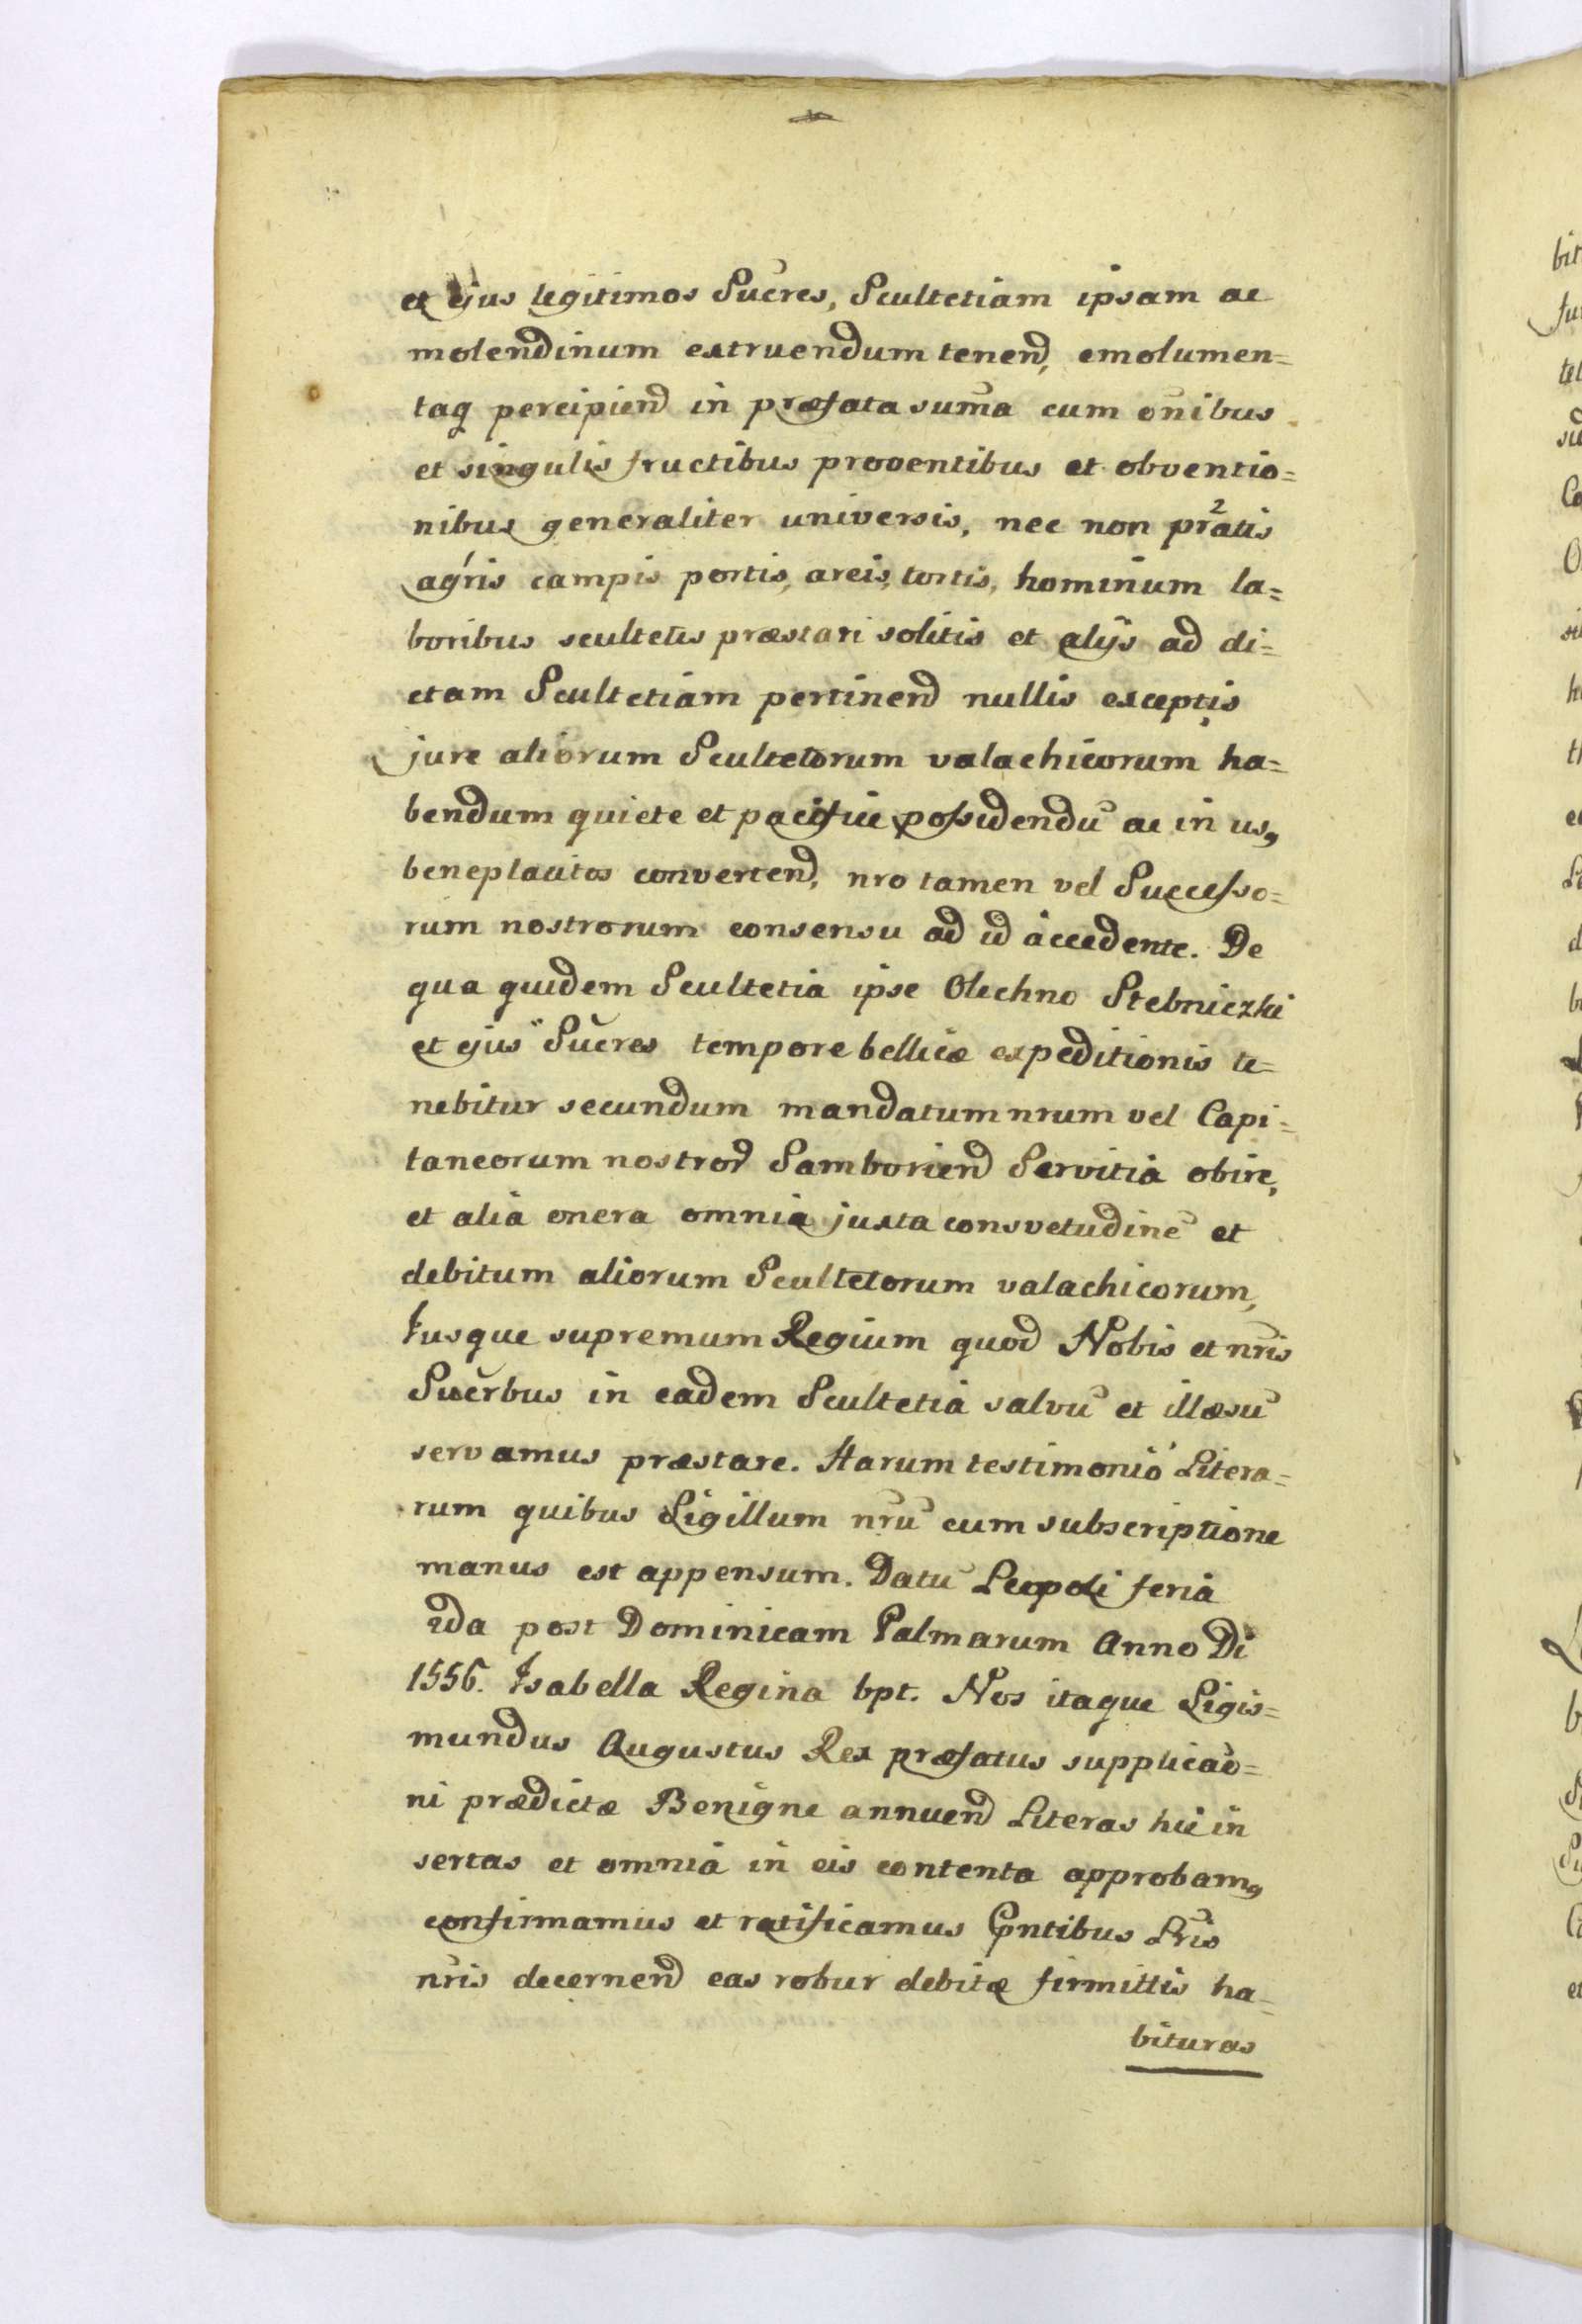 et ejus legitimos Sucres, Scultetiam ipsam ac
molendinum extruendum tenend, emolumen=
taq percipiend in præfata suma cum onibus
et singulis fructibus proventibus et obventio=
nibus generaliter universis, nec non pratis
agris campis portis, areis, tortis, hominum la=
boribus scultetis præstari solitis et alijs ad di=
ctam Scultetiam pertinend nullis exceptis
jure aliorum Scultetorum valachicorum ha=
bendum quiete et pacifice possidendu ac in us9
beneplacitos convertend, nro tamen vel Successo=
rum nostrorum consensu ad id accedente. De
qua quidem Scultetia ipse Olechno Stebniczki
et ejus Sucres tempore bellicæ expeditionis te=
nebitur secundum mandatum nrum vel Capi=
taneorum nostror Samboriend Servitia obire,
et alia onera omnia juxta consvetudine et
debitum aliorum Scultetorum valachicorum,
Jusque supremum Regium quod Nobis et nris
Sucrbus in eadem Scultetia salvu et illæsu
servamus præstare. Harum testimonio Litera=
rum quibus Sigillum nru cum subscriptione
manus est appensum. Datu Leopoli feria
2da post Dominicam Palmarum Anno Di
1556. Isabella Regina bpt. Nos itaque Sigis=
mundus Augustus Rex præfatus supplicao=
ni prædictæ Benigne annuend Literas hic in
sertas et omnia in eis contenta approbam9
confirmamus et ratificamus Pntibus Lris
nris decernend eas robur debitæ firmittis ha=
bituras